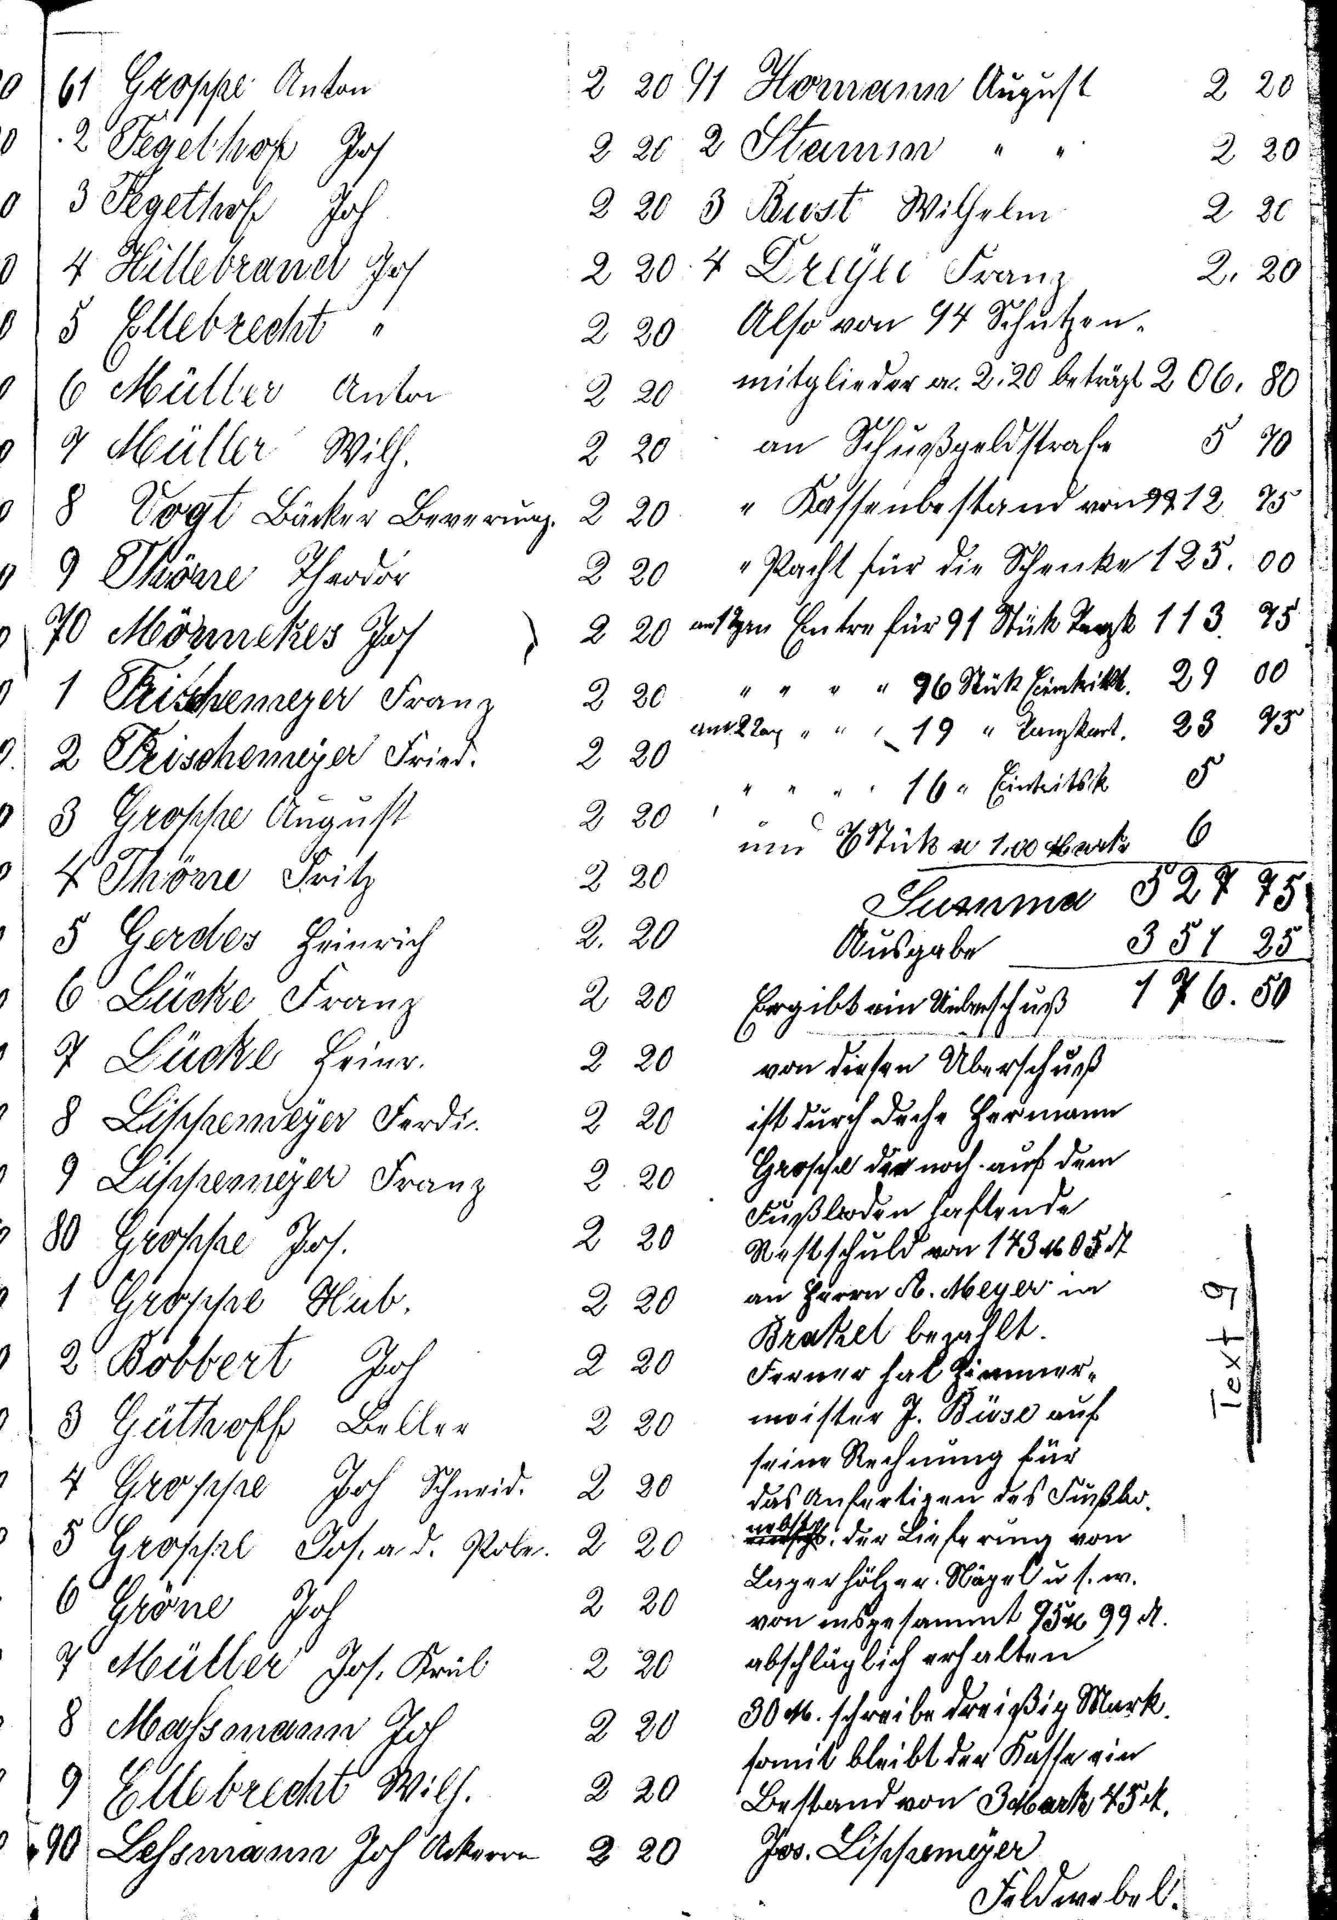 61 Groppe Anton 2 20
2 Tegethof Jos 2 20
3 Tegethof Joh 2 20
4 Hillebrand Jos 2 20
5 Ellebrecht " 2 20
6 Müller Anton 2 20
7 Müller Wilh. 2 20
8 Vogt Bäcker Beverung. 2 20
9 Thöne Theodor 2 20
70 Mönnekes Jos 2 20
1 Frischemeyer Franz 2 20
2 Frischemeyer Fried. 2 20
3 Groppe August 2 20
4 Thöne Fritz 2 20
5 Gerdes Heinrich 2. 20
6 Lücke Franz 2 20
7 Lücke Heinr. 2 20
8 Lippemeyer Ferdi. 2 20
9 Lippemeyer Franz 2 20
80 Groppe Jos. 2 20
1 Groppe Hub. 2 20
2 Bobbert Joh 2 20
3 Güthoff Beller 2 20
4 Groppe Joh Schneid. 2 20
5 Groppe Jos. a. d. 2 20
6 Gröne Joh 2 20
7 Müller Jos. Krül 2 20
8 Massmann Joh 2 20
9 Ellebrecht Wilh. 2 20
90 Lessmann Joh Ackerm 2 20
91 Homann August 2 20
2 Stamm " " 2 20
3 Bust Wilhelm 2 20
4 Dreyer Franz 2. 20
Also von 94 Schützen-
mitglieder a. 2.20 beträgt 206. 80
an Schußgeldstrafe 5 70
" Kassenbestand von 12 75
" Pacht für die Schenke 125. 00
am 1 Entre für 91 Stük 113 75
" " " " 96 Stük Eintrikt. 29 00
am 2 Tag " " " 19 " Tanzkart. 23 75
" " " " 16 " Eintritsk 5
und 6 Stük a 1.00 Mark 6
Summa 527 75
Ausgabe 351 25
Ergibt ein Ueberschuß 176. 50
von diesen Überschuß
ist durch Deche Hermann
Groppe der noch auf dem
Fußboden haftende
Restschuld von 143 M 05 ₰
an Herrn A. Meyer in
Brakel bezahlt.
Ferner hat Zimmer-
meister J. Büse auf
seine Rechnung für
das Anfertigen des Fußbo.
nebst der Lieferung von
Lagerhölzer. Nägel u s. w.
von insgesammt 95 M 99 ₰.
abschläglich erhalten
30 M. schreibe dreißig Mark.
somit bleibt der Kasse ein
Bestand von 3 Mark 45 ₰.
Jos. Lippemeyer
Feldwebel.
Text 9